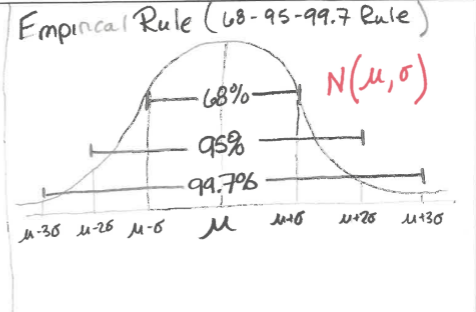 Empirical Rule (68-95-99.7 Rule)
N(μ,σ)
68%
95%
99.7%
μ-3σ μ-2σ μ-σ μ μ+σ μ+2σ μ+3σ